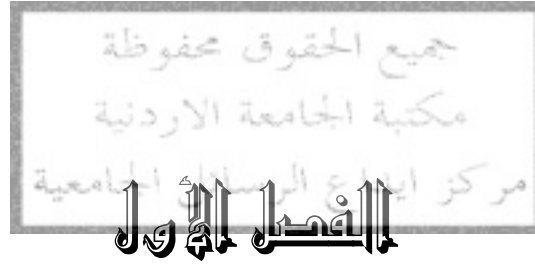 جميع الحقوق محفوظة
مكتبة الجامعة الاردنية
مركز ايداع الرسائل الجامعية
الفصل الأول